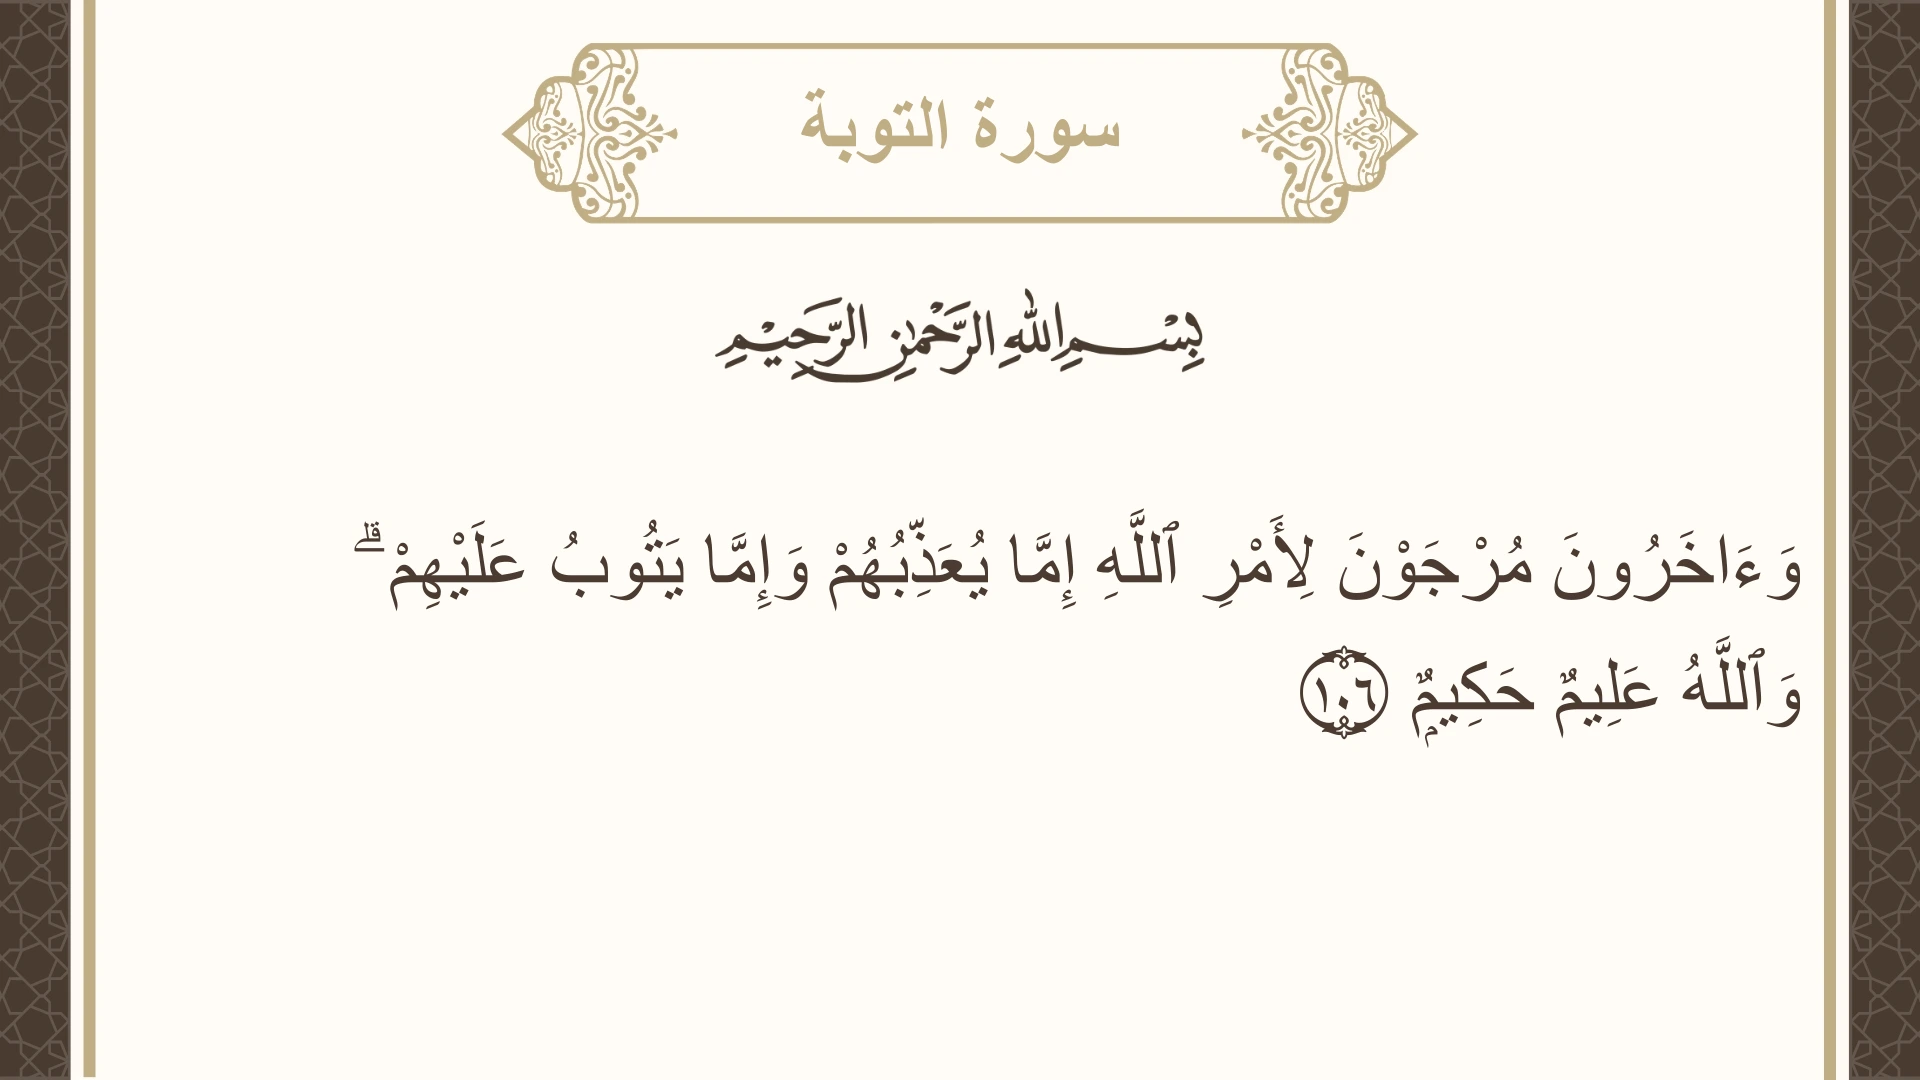 سورة التوبة
بِسْمِ اللهِ الرَّحْمٰنِ الرَّحِيْمِ
وَءَاخَرُونَ مُرْجَوْنَ لِأَمْرِ ٱللَّهِ إِمَّا يُعَذِّبُهُمْ وَإِمَّا يَتُوبُ عَلَيْهِمْ ۗ
وَٱللَّهُ عَلِيمٌ حَكِيمٌۭ ١٠٦